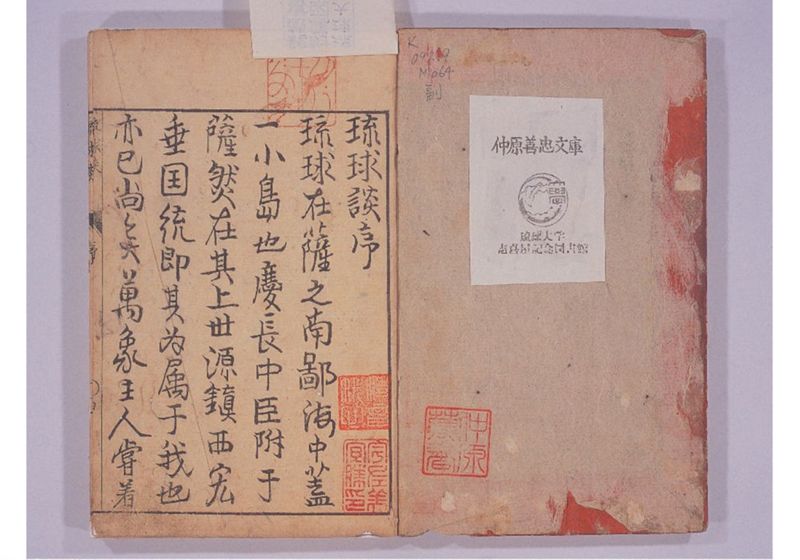 副
仲原善忠文庫
琉球大学
志喜屋記念図書館
琉球談序
琉球在薩之南鄙海中蓋
一小島也慶長中臣附于
薩然在其上世源鎮西宏
垂国統即其为属于我也
亦已尚矣萬象主人嘗着